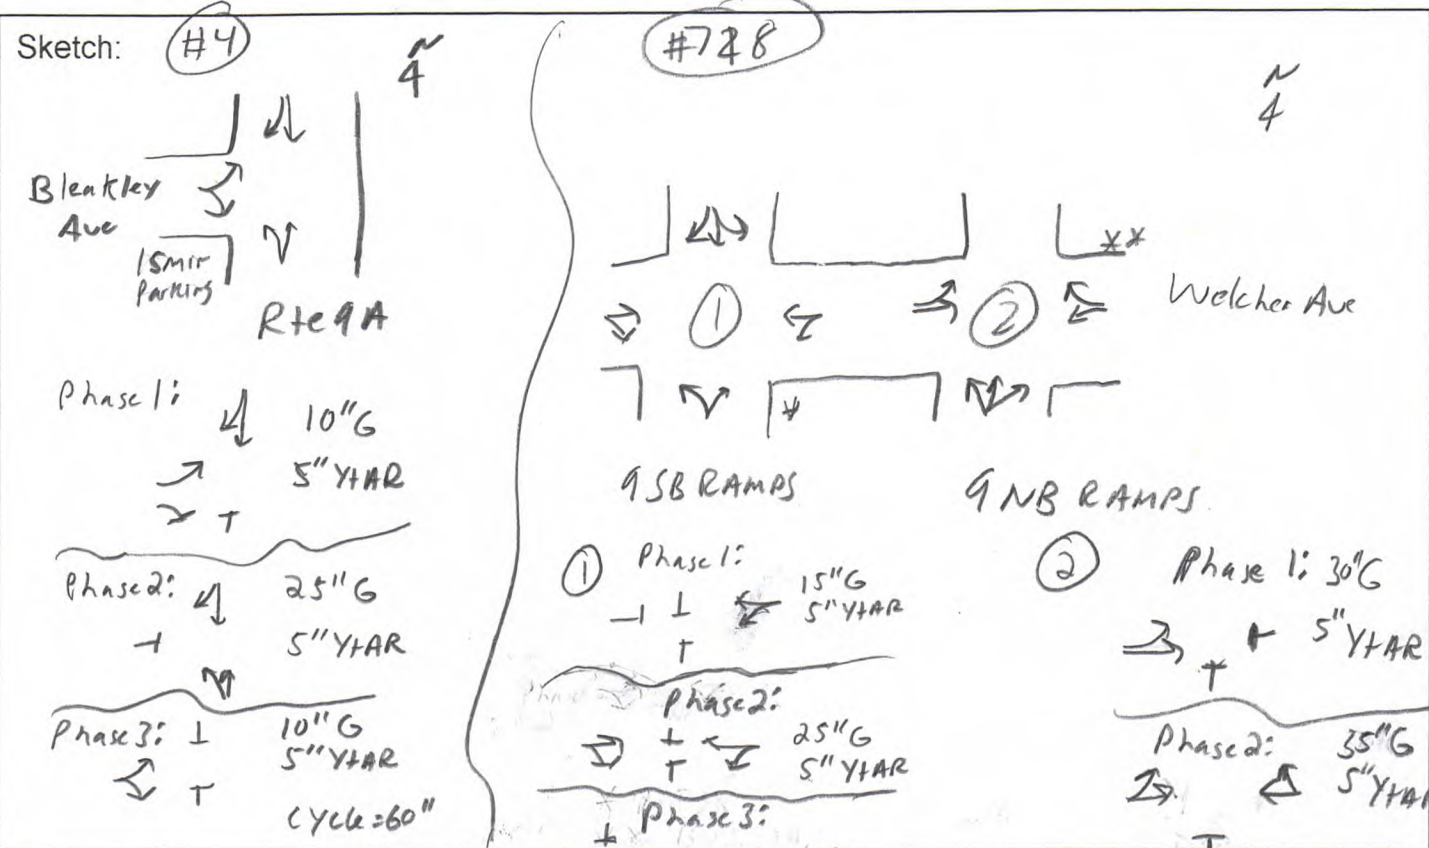 Sketch:
#4
N
Bleakley
Ave
15min
Parking
Rte 9A
Phase 1:
10"G
5" Y+AR
Phase2:
25"G
5" Y+AR
Phase3:
10"G
5" Y+AR
Cycle=60"
#7&8
N
**
1
2
Welcher Ave
*
9 SB RAMPS
9 NB RAMPS
1
Phase1:
15"G
5" Y+AR
Phase2:
25"G
5" Y+AR
Phase3:
2
Phase 1: 30"G
5" Y+AR
Phase2: 35"G
5" Y+AR